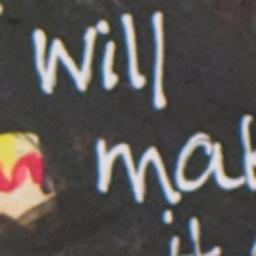 will
mak
it